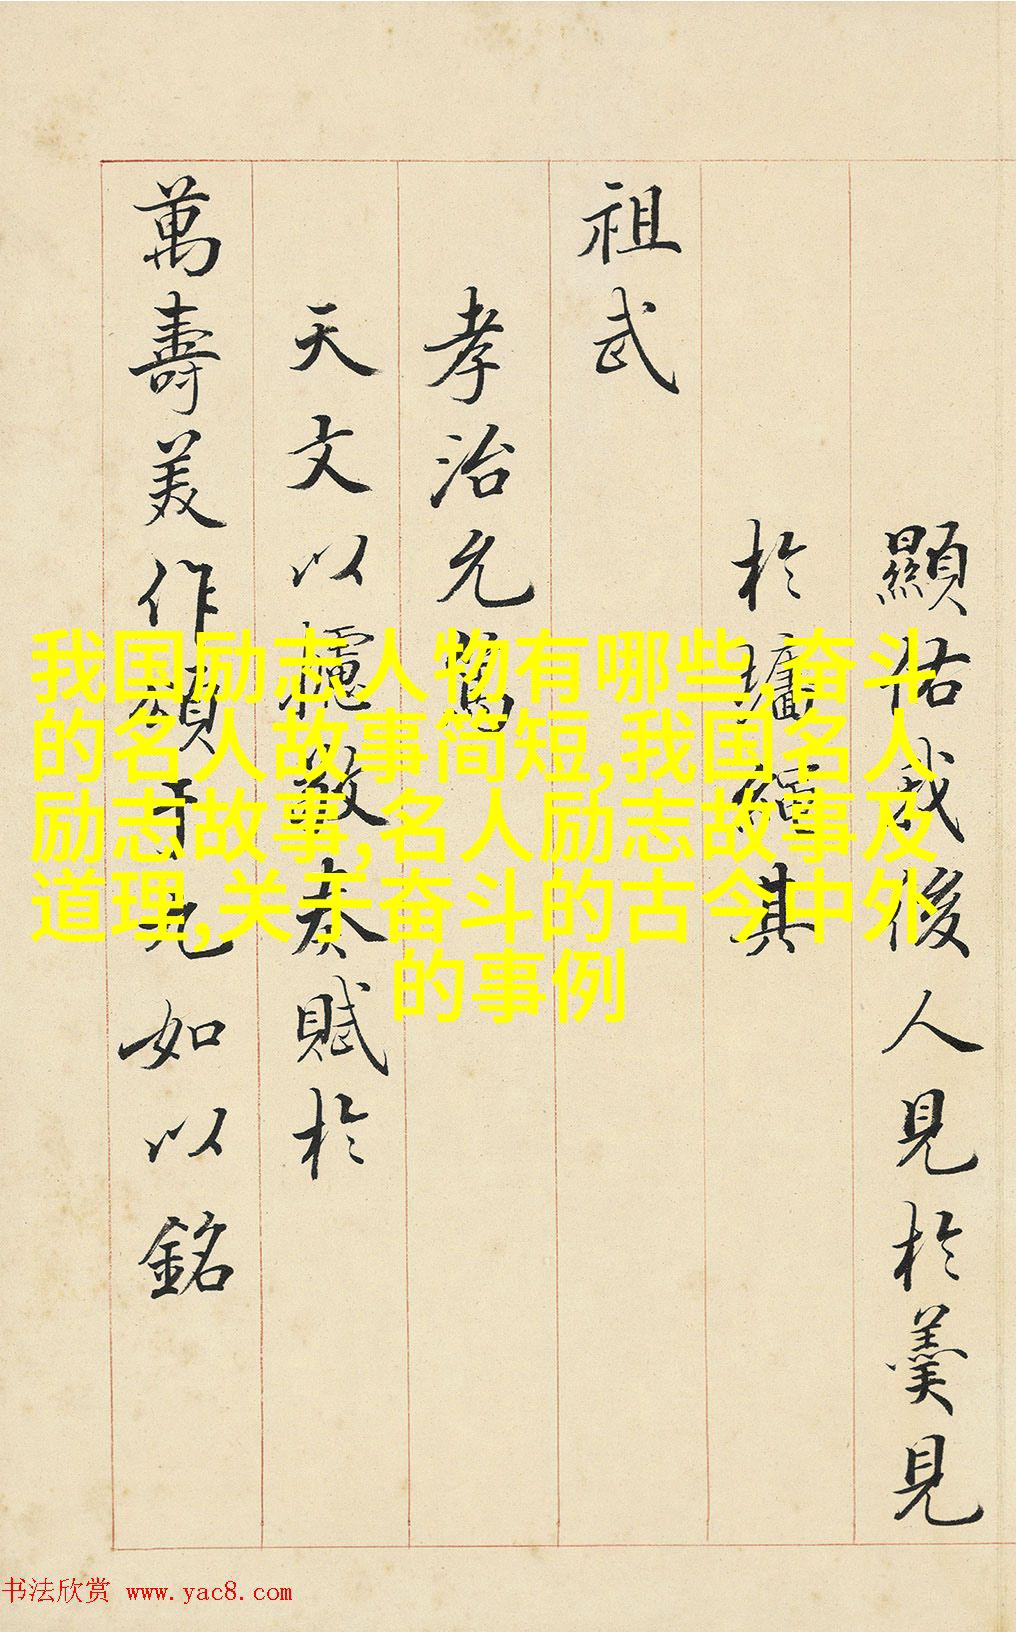 顯佑我後人見於羹見
於牆繩其
祖武
孝治允篤
天文以攄敬奏賦於
萬壽美作頌于九如以銘
我国励志人物有哪些,奋斗
的名人故事简短,我国名人
励志故事,名人励志故事及
道理,关于奋斗的古今中外
的事例
书法欣赏 www.yac8.com